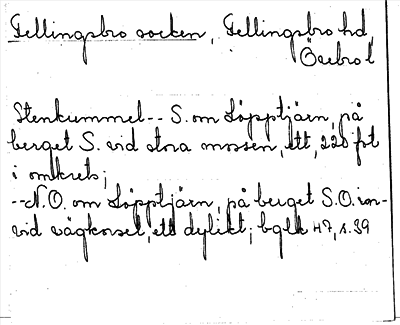 Fellingsbro socken, Fellingsbro hd,
Örebro l
Stenkummel -- S. om Löpptjärn, på
berget S. vid stora mossen, ett, 220 fot
i omkrets;
-- N.O. om Löpptjärn, på berget S.O. in-
vid vägkorset, ett dylikt; bglh 47, s. 39